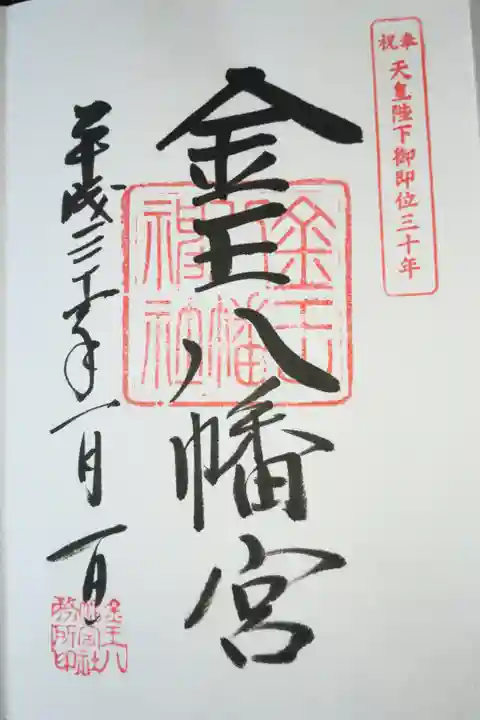 奉祝
天皇陛下御即位三十年
金王八幡宮
金王
八幡
神社
平成三十年一月一日
金王八
幡宮社
務所印